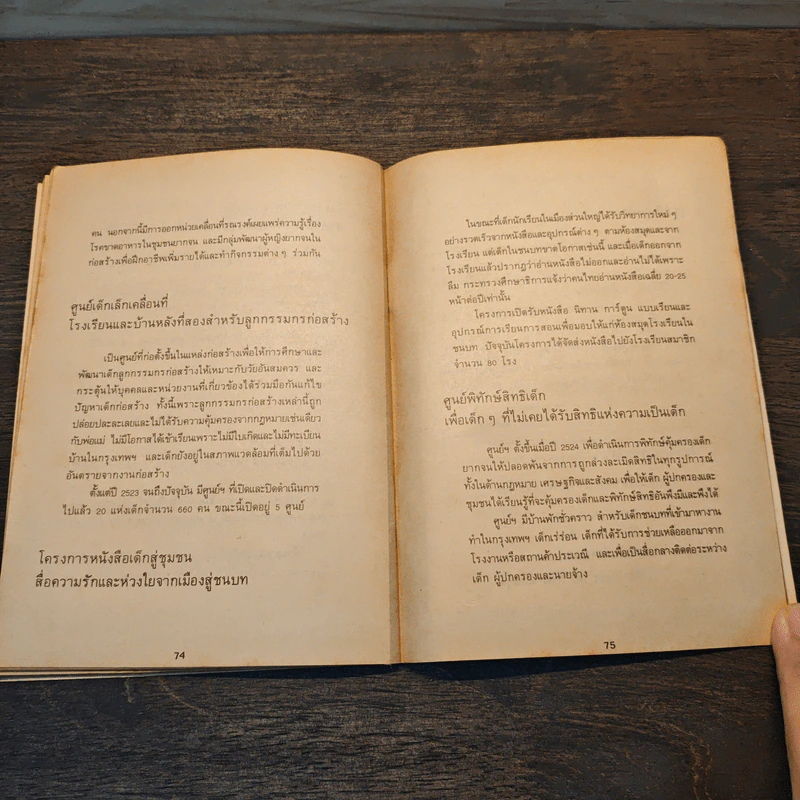 คน นอกจากนี้มีการออกหน่วยเคลื่อนที่รณรงค์เผยแพร่ความรู้เรื่อง
โรคขาดอาหารในชุมชนยากจน และมีกลุ่มพัฒนาผู้หญิงยากจนใน
ก่อสร้างเพื่อฝึกอาชีพเพิ่มรายได้และทำกิจกรรมต่าง ๆ ร่วมกัน
ศูนย์เด็กเล็กเคลื่อนที่
โรงเรียนและบ้านหลังที่สองสำหรับลูกกรรมกรก่อสร้าง
เป็นศูนย์ที่ก่อตั้งขึ้นในแหล่งก่อสร้างเพื่อให้การศึกษาและ
พัฒนาเด็กลูกกรรมกรก่อสร้างให้เหมาะกับวัยอันสมควร และ
กระตุ้นให้บุคคลและหน่วยงานที่เกี่ยวข้องได้ร่วมมือกันแก้ไข
ปัญหาเด็กก่อสร้าง ทั้งนี้เพราะลูกกรรมกรก่อสร้างเหล่านี้ถูก
ปล่อยปละละเลยและไม่ได้รับความคุ้มครองจากกฎหมายเช่นเดียว
กับพ่อแม่ ไม่มีโอกาสได้เข้าเรียนเพราะไม่มีใบเกิดและไม่มีทะเบียน
บ้านในกรุงเทพฯ และเด็กยังอยู่ในสภาพแวดล้อมที่เต็มไปด้วย
อันตรายจากงานก่อสร้าง
ตั้งแต่ปี 2523 จนถึงปัจจุบัน มีศูนย์ฯ ที่เปิดและปิดดำเนินการ
ไปแล้ว 20 แห่งเด็กจำนวน 660 คน ขณะนี้เปิดอยู่ 5 ศูนย์
โครงการหนังสือเด็กสู่ชุมชน
สื่อความรักและห่วงใยจากเมืองสู่ชนบท
74
ในขณะที่เด็กนักเรียนในเมืองส่วนใหญ่ได้รับวิทยาการใหม่ ๆ
อย่างรวดเร็วจากหนังสือและอุปกรณ์ต่าง ๆ ตามห้องสมุดและจาก
โรงเรียน แต่เด็กในชนบทขาดโอกาสเช่นนี้ และเมื่อเด็กออกจาก
โรงเรียนแล้วปรากฏว่าอ่านหนังสือไม่ออกและอ่านไม่ได้เพราะ
ลืม กระทรวงศึกษาธิการแจ้งว่าคนไทยอ่านหนังสือเฉลี่ย 20-25
หน้าต่อปีเท่านั้น
โครงการเปิดรับหนังสือ นิทาน การ์ตูน แบบเรียนและ
อุปกรณ์การเรียนการสอนเพื่อมอบให้แก่ห้องสมุดโรงเรียนใน
ชนบท ปัจจุบันโครงการได้จัดส่งหนังสือไปยังโรงเรียนสมาชิก
จำนวน 80 โรง
ศูนย์พิทักษ์สิทธิเด็ก
เพื่อเด็ก ๆ ที่ไม่เคยได้รับสิทธิแห่งความเป็นเด็ก
ศูนย์ฯ ตั้งขึ้นเมื่อปี 2524 เพื่อดำเนินการพิทักษ์คุ้มครองเด็ก
ยากจนให้ปลอดพ้นจากการถูกล่วงละเมิดสิทธิในทุกรูปการณ์
ทั้งในด้านกฎหมาย เศรษฐกิจและสังคม เพื่อให้เด็ก ผู้ปกครองและ
ชุมชนได้เรียนรู้ที่จะคุ้มครองเด็กและพิทักษ์สิทธิอันพึงมีและพึงได้
ศูนย์ฯ มีบ้านพักชั่วคราว สำหรับเด็กชนบทที่เข้ามาหางาน
ทำในกรุงเทพฯ เด็กเร่ร่อน เด็กที่ได้รับการช่วยเหลือออกมาจาก
โรงงานหรือสถานค้าประเวณี และเพื่อเป็นสื่อกลางติดต่อระหว่าง
เด็ก ผู้ปกครองและนายจ้าง
75